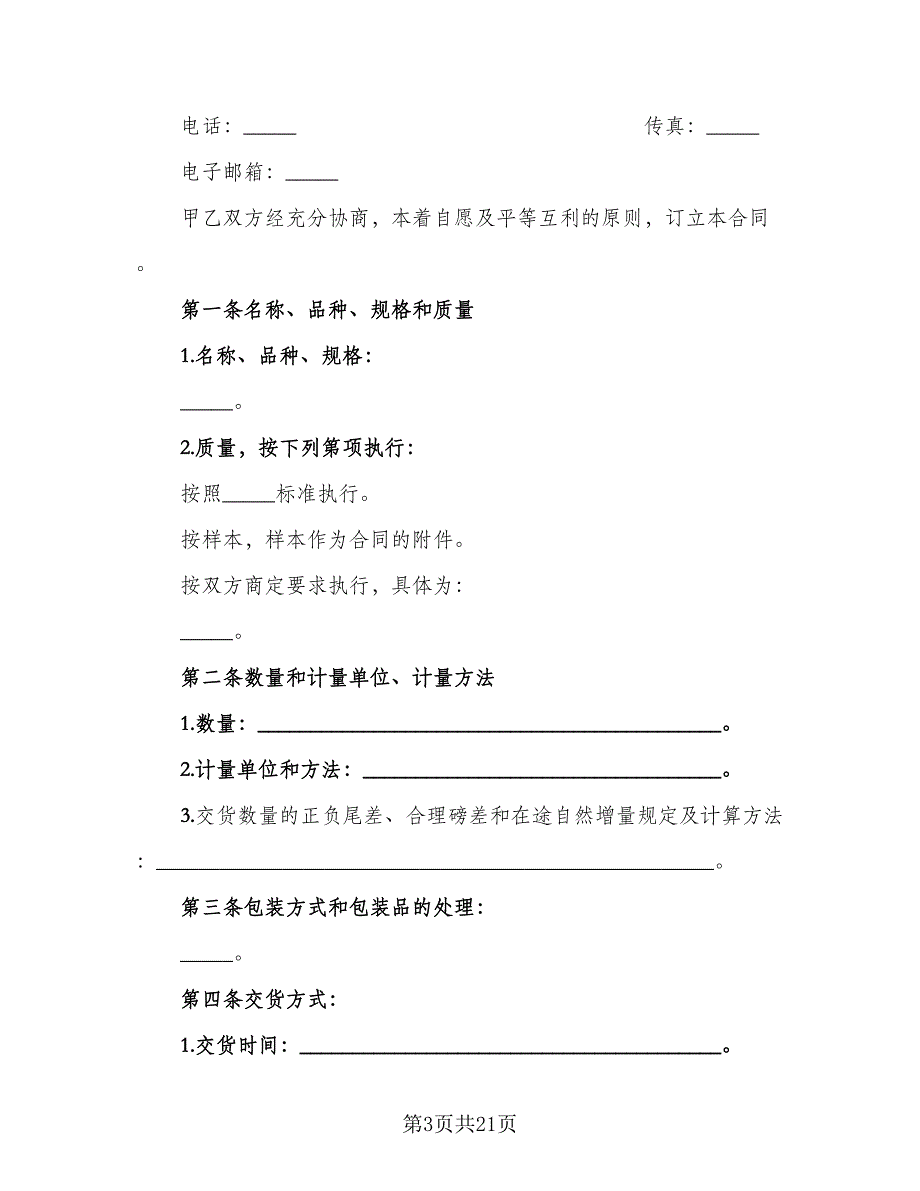 电话：_____ 传真：_____
电子邮箱：_____
甲乙双方经充分协商，本着自愿及平等互利的原则，订立本合同
。
第一条名称、品种、规格和质量
1.名称、品种、规格：
_____。
2.质量，按下列第项执行：
按照_____标准执行。
按样本，样本作为合同的附件。
按双方商定要求执行，具体为：
_____。
第二条数量和计量单位、计量方法
1.数量：____________________________________________。
2.计量单位和方法：__________________________________。
3.交货数量的正负尾差、合理磅差和在途自然增量规定及计算方法
：_____________________________________________________。
第三条包装方式和包装品的处理：
_____。
第四条交货方式：
1.交货时间：________________________________________。
第3页共21页